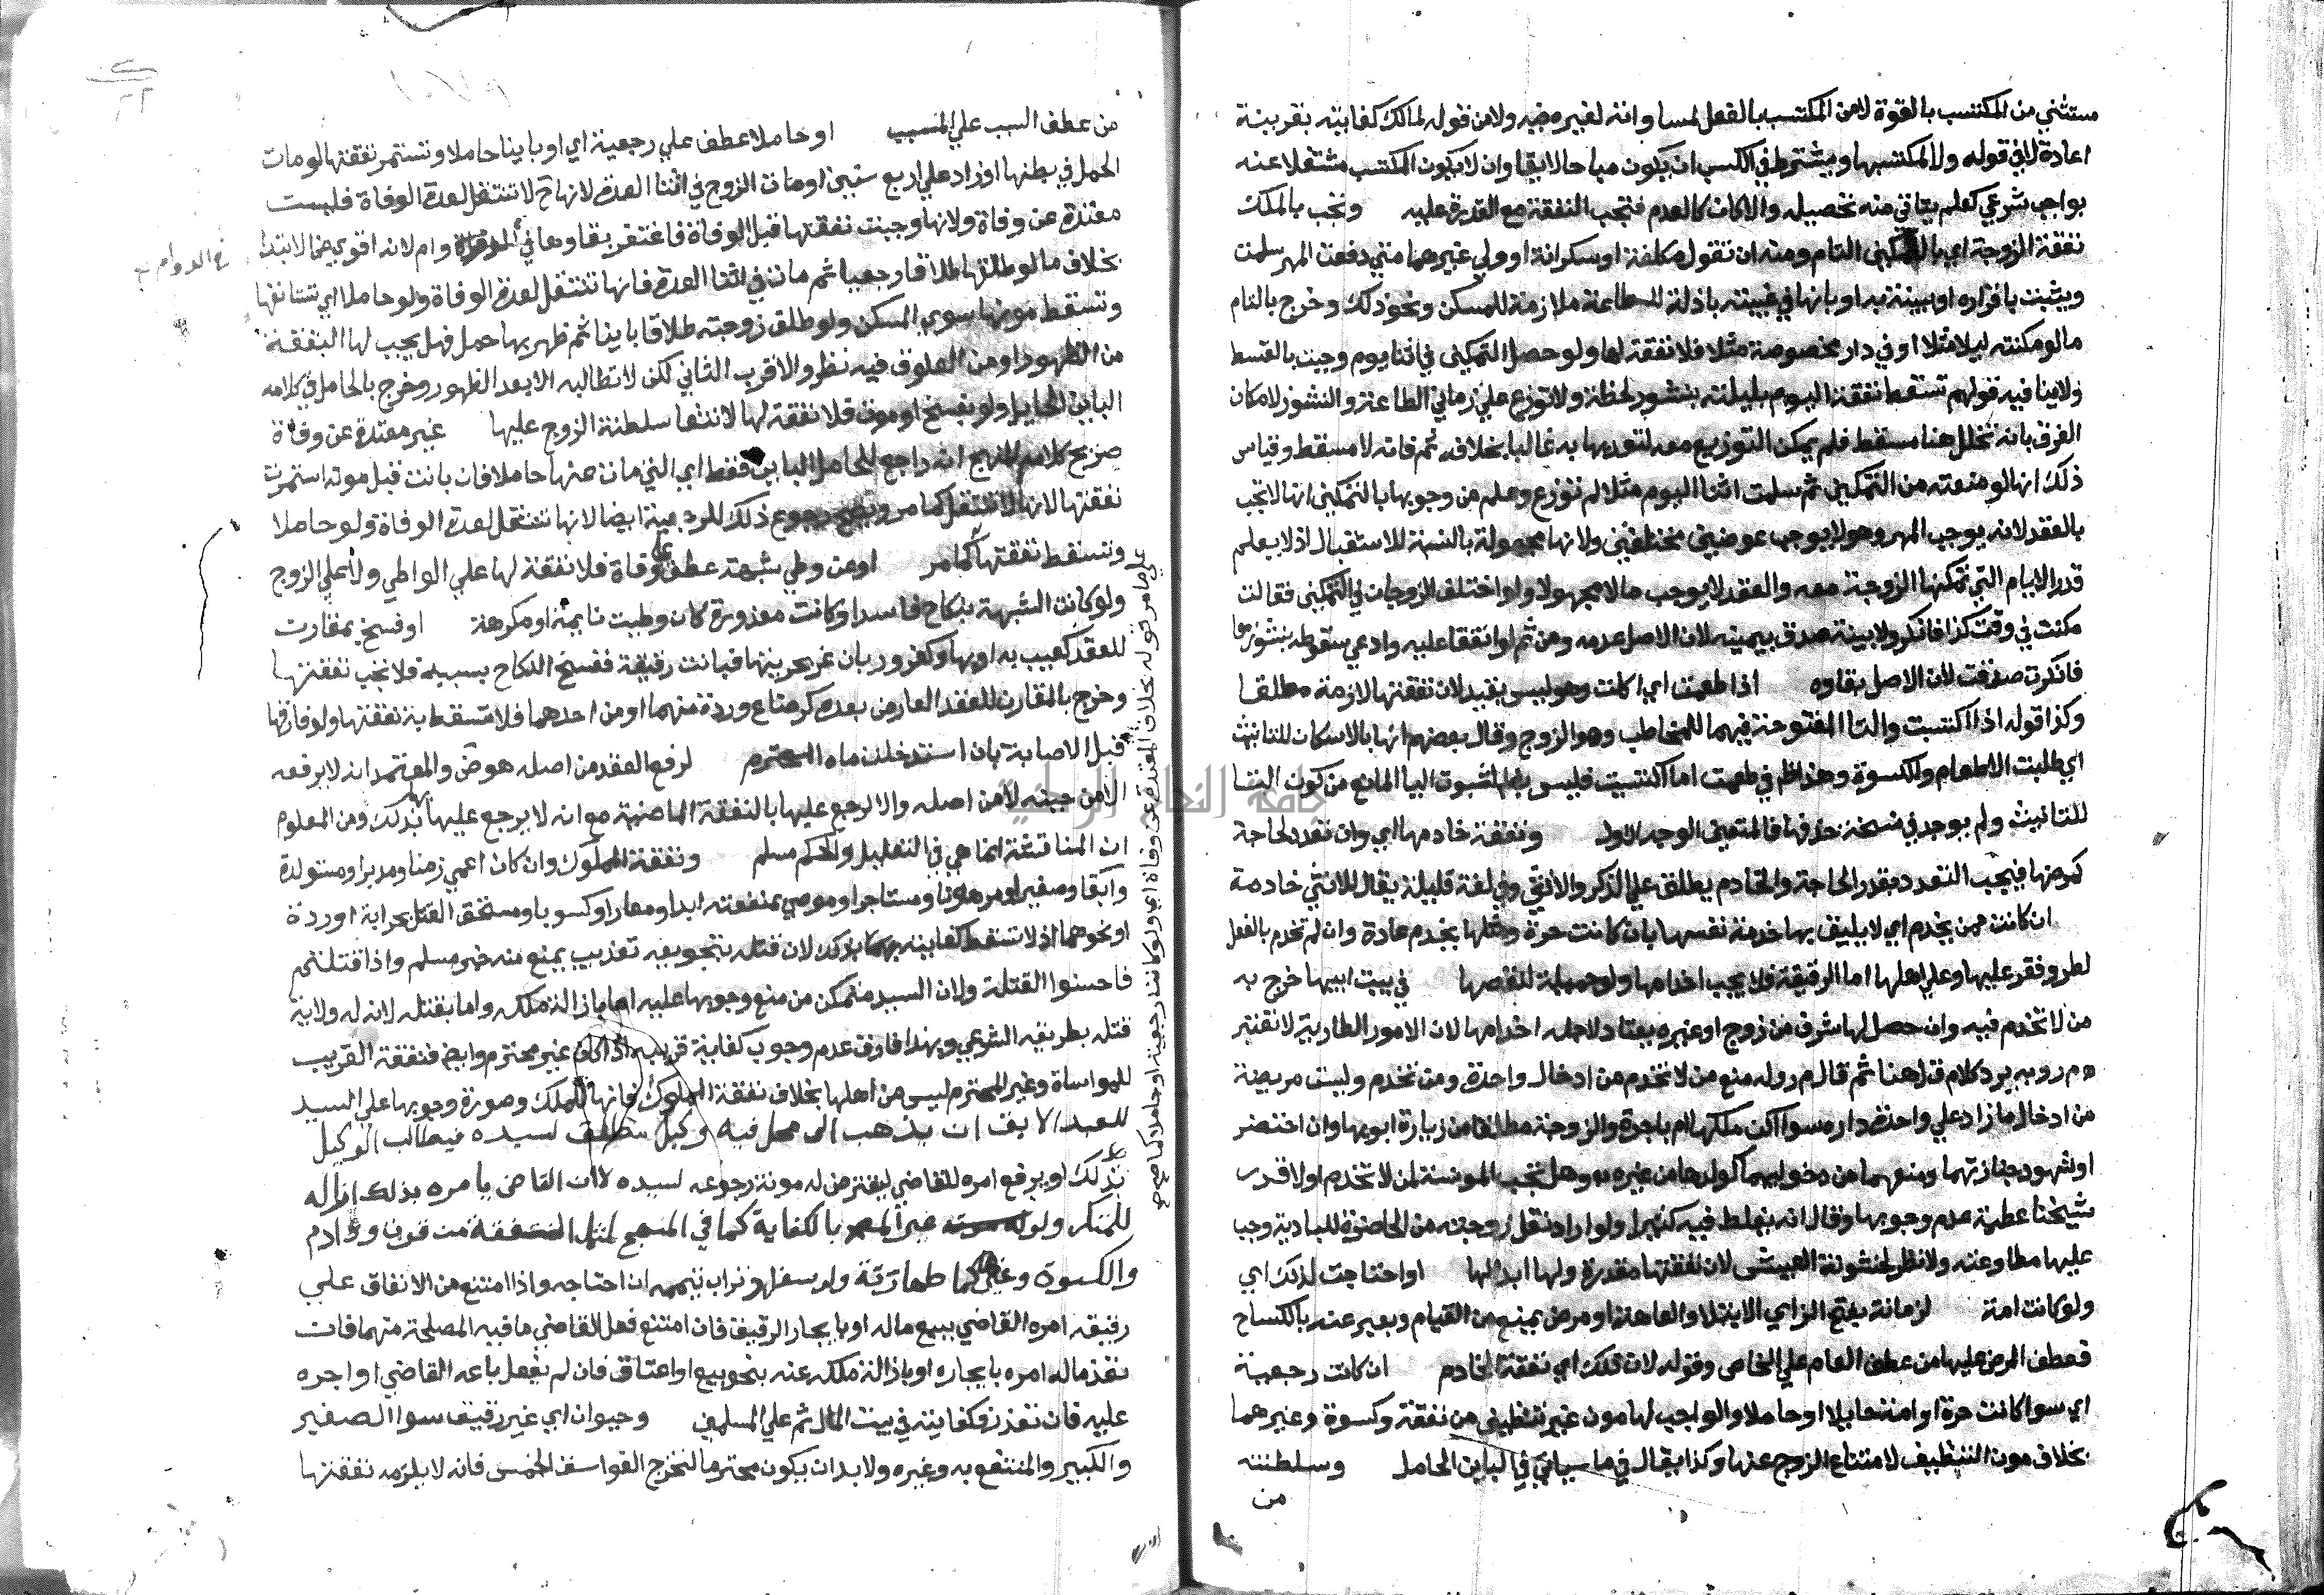 مستثني من المكتسب بالقوة لا من المكتسب بالفعل لمساواته لغيره فيه ولا من قوله لمالك كفايته بقرينة
اعادة لا في قوله ولا لمكتسبها ويشترط في الكسب ان يكون مباحا لايقا وان لا يكون المكتسب مشتغلا عنه
بواجب شرعي كعلم يتاتي منه تحصيله والا كان كالعدم فتجب النفقة مع القدرة عليه وتجب بالملك
نفقة الزوجة اي بالتمكين التام ومنه ان تقول مكلفة او سكرانة او ولي غيرهما متي دفعت المهر سلمت
ويثبت باقراره او ببينة به او بانها في غيبته باذلة للطاعة ملازمة للمسكن ونحو ذلك وخرج بالتام
ما لو مكنته ليلا مثلا او في دار مخصوصة مثلا فلا نفقة لها ولو حصل التمكين في اثنا يوم وجبت بالقسط
ولا ينافيه قولهم تسقط نفقة اليوم بليلته بنشوز لحظة ولا توزع علي زماني الطاعة والنشوز لامكان
الفرق بانه تخلل هنا مسقط فلم يمكن التوزيع معه لتعديها به غالبا بخلافه ثم فانه لا مسقط وقياس
ذلك انها لو منعته من التمكين ثم سلمت اثنا اليوم مثلا لم توزع وعلم من وجوبها بالتمكين انها لا تجب
بالعقد لانه يوجب المهر وهو لا يوجب عوضين مختلفين ولانها مجهولة بالنسبة للاستقبال اذ لا يعلم
قدر الايام التي تمكنها الزوجة معه والعقد لا يوجب مالا مجهولا ولو اختلف الزوجان في التمكين فقالت
مكنت في وقت كذا فانكر ولا بينة صدق بيمينه لان الاصل عدمه ومن ثم لو اتفقا عليه وادعي سقوطه بنشوزها
فانكرت صدقت لان الاصل بقاوه اذا طعمت اي اكلت وهو ليس بقيد لان نفقتها لازمة مطلقا
وكذا قوله اذا اكتسبت والتا المفتوحة فيهما للمخاطب وهو الزوج وقال بعضهم انها بالاسكان للتانيث
اي طلبت الاطعام والكسوة وهذا ظ في طعمت اما اكتسيت فليس لثبوت اليا المانع من كون التا
للتانيث ولم يوجد في نسخة حذفها فالمتعين الوجه الاول ونفقة خادمها اي وان تعدد لحاجة
كمرضها فيجب التعدد بقدر الحاجة والخادم يطلق علي الذكر والانثي وفي لغة قليلة يقال للانثي خادمة
ان كانت ممن يخدم اي لا يليق بها خدمة نفسها بان كانت حرة ومثلها يخدم عادة وان لم تخدم بالفعل
لطرو فقر عليها وعلي اهلها اما الرقيقة فلا يجب اخدامها ولو جميلة لنقصها في بيت ابيها خرج به
من لا تخدم فيه وان حصل لها شرف من زوج او غيره يعتاد لاجله اخدامها لان الامور الطارية لا تعتبر
م ر وبه يرد كلام ق ل هنا ثم قال م ر وله منع من لا تخدم من ادخال واحدة ومن تخدم وليست مريضة
من ادخال ما زاد علي واحدة داره سوا اكن ملكها ام باجرة والزوجة مطلقا من زيارة ابويها وان احتضر
او شهود جنازتهما ومنعهما من دخولهما كولدها من غيره وهل تجب المونسة لمن لا تخدم او لا قد ر
شيخنا عطية عدم وجوبها وقال انه يغلط فيه كثيرا ولو اراد نقل زوجته من الحاضرة للبادية وجب
عليها مطاوعته ولا نظر لخشونة العيش لان نفقتها مقدرة ولها ابدالها او احتاجت لذلك اي
ولو كانت امة لزمانة بفتح الزاي الابتلا والعاهة او مرض يمنع من القيام ويعبر عنه بالكساح
فعطف المرض عليها من عطف العام علي الخاص وقوله لان تلك اي نفقة الخادم ان كانت رجعية
اي سوا كانت حرة او امة حايلا او حاملا والواجب لها مون غير تنظيف من نفقة وكسوة وغيرهما
بخلاف مون التنظيف لامتناع الزوج عنها وكذا يقال فيما سياتي في الباين الحامل وسلطنته
من
من عطف السبب علي المسبب او حاملا عطف علي رجعية اي او باينا حاملا وتستمر نفقتها لو مات
الحمل في بطنها او زاد علي اربع سنين او مات الزوج في اثنا العدة لانها ح لا تنتقل لعدة الوفاة فليست
معتدة عن وفاة ولانها وجبت نفقتها قبل الوفاة فاغتفر بقاوها في الدوام لانه اقوي من الابتدا
بخلاف ما لو طلقها طلاقا رجعيا ثم مات في اثنا العدة فانها تنتقل لعدة الوفاة ولو حاملا اي تستانفها
وتسقط مونها سوي السكن ولو طلق زوجته طلاقا باينا ثم ظهر بها حمل فهل يجب لها النفقة
من الظهور او من العلوق فيه نظر والاقرب الثاني لكن لا تطالبه الا بعد الظهور وخرج بالحامل في كلامه
الباين الحايل ولو بفسخ او موت فلا نفقة لها لانتفا سلطنة الزوج عليها غير معتدة عن وفاة
صريح كلام المنهج انه راجع للحامل الباين فقط اي التي مات عنها حاملا فان بانت قبل موته استمرت
نفقتها لانها لا تنتقل كما مر ويصح رجوع ذلك للرجعية ايضا لانها تنتقل لعدة الوفاة ولو حاملا
وتسقط نفقتها كما مر او عن وطي شبهة عطف علي وفاة فلا نفقة لها علي الواطي ولا علي الزوج
ولو كانت الشبهة بنكاح فاسد او كانت معذورة كان وطيت نايمة او مكرهة او فسخ بمقارن
للعقد كعيب به او بها وكغرور بان غر بحريتها فبانت رقيقة ففسخ النكاح بسببه فلا تجب نفقتها
وخرج بالمقارن للعقد العارض بعده كرضاع وردة منهما او من احدهما فلا تسقط به نفقتها ولو فارقها
قبل الاصابة بان استدخلت ماه المحترم لرفع العقد من اصله هو ض والمعتمد انه لا يرفعه
الا من حينه لا من اصله والا لرجع عليها بالنفقة الماضية مع انه لا يرجع عليها بذلك ومن المعلوم
ان المناقشة انما هي في التعليل والحكم مسلم ونفقة المملوك وان كان اعمي زمنا ومدبرا ومستولدة
وابقا وصغيرا ومرهونا ومستاجرا وموصي بمنفعته ابدا ومعارا وكسوبا ومستحق القتل بحرابة او ردة
او نحوهما اذ لا تسقط كفايته بذلك لان قتله بتجويعه تعذيب يمنع منه خبر مسلم واذا قتلتم
فاحسنوا القتلة ولان السيد متمكن من منع وجوبها عليه اما بازالة ملكه واما بقتله لانه له ولاية
قتله بطريقه الشرعي وبهذا فارق عدم وجوب كفاية قريبه اذا كان غير محترم وايضا فنفقة القريب
للمواساة وغير المحترم ليس من اهلها بخلاف نفقة المملوك فانها للملك وصورة وجوبها علي السيد
للعبد الابق ان يذهب الى محل فيه وكيل مطلق لسيده فيطالب الوكيل
بذلك او يرفع امره للقاضي ليقترض له مونة رجوعه لسيده لان القاضي يامره بذلك ازاله
للمنكر ولو بالكفاية كما في المنهج لتشمل النفقة من قوت وادم
والكسوة وغيرها كما طهارته ولو سفرا وتراب تيممه ان احتاجه واذا امتنع من الانفاق علي
رقيقه امره القاضي ببيع ماله او بايجار الرقيق فان امتنع فعل القاضي ما فيه المصلحة منهما فان
نفذ ماله امره بايجاره او بازالة ملكه عنه بنحو بيع او اعتاق فان لم يفعل باعه القاضي او اجره
عليه فان تعذر فكفايته في بيت المال ثم علي المسلمين وحيوان اي غير رقيق سوا الصغير
والكبير والمنتفع به وغيره ولا بد ان يكون محترما لتخرج الفواسق الخمس فانه لا يلزمه نفقتها
في الدوام
علي ما مر قوله بخلاف المعتدة عن وفاة اي ولو كانت رجعية او حاملا كما صح
جامعة النجاح الوطنية